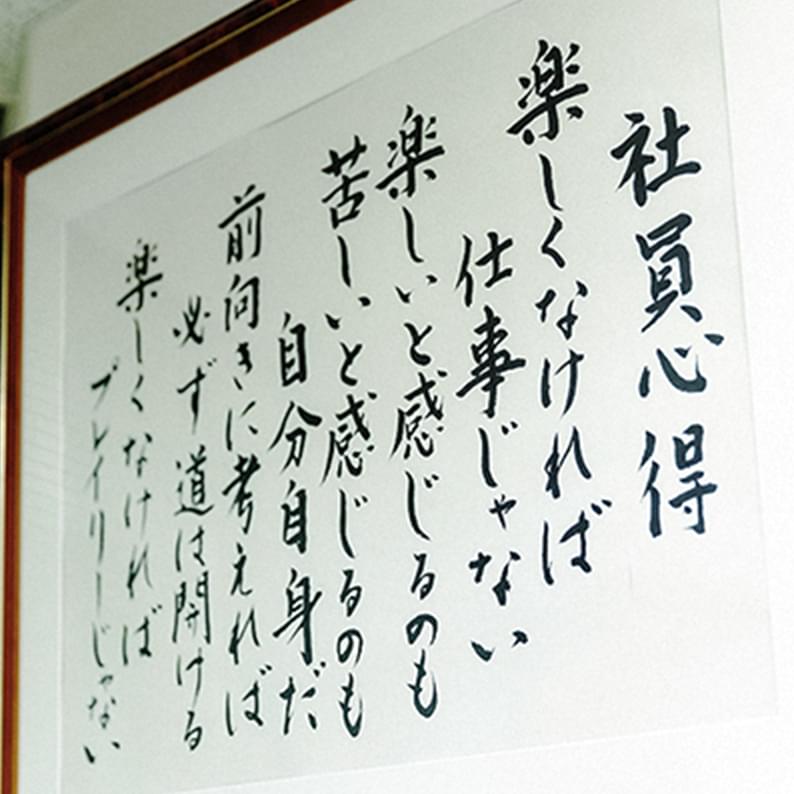 社員心得
楽しくなければ
仕事じゃない
楽しいと感じるのも
苦しいと感じるのも
自分自身だ
前向きに考えれば
必ず道は開ける
楽しくなければ
ブレイリーじゃない